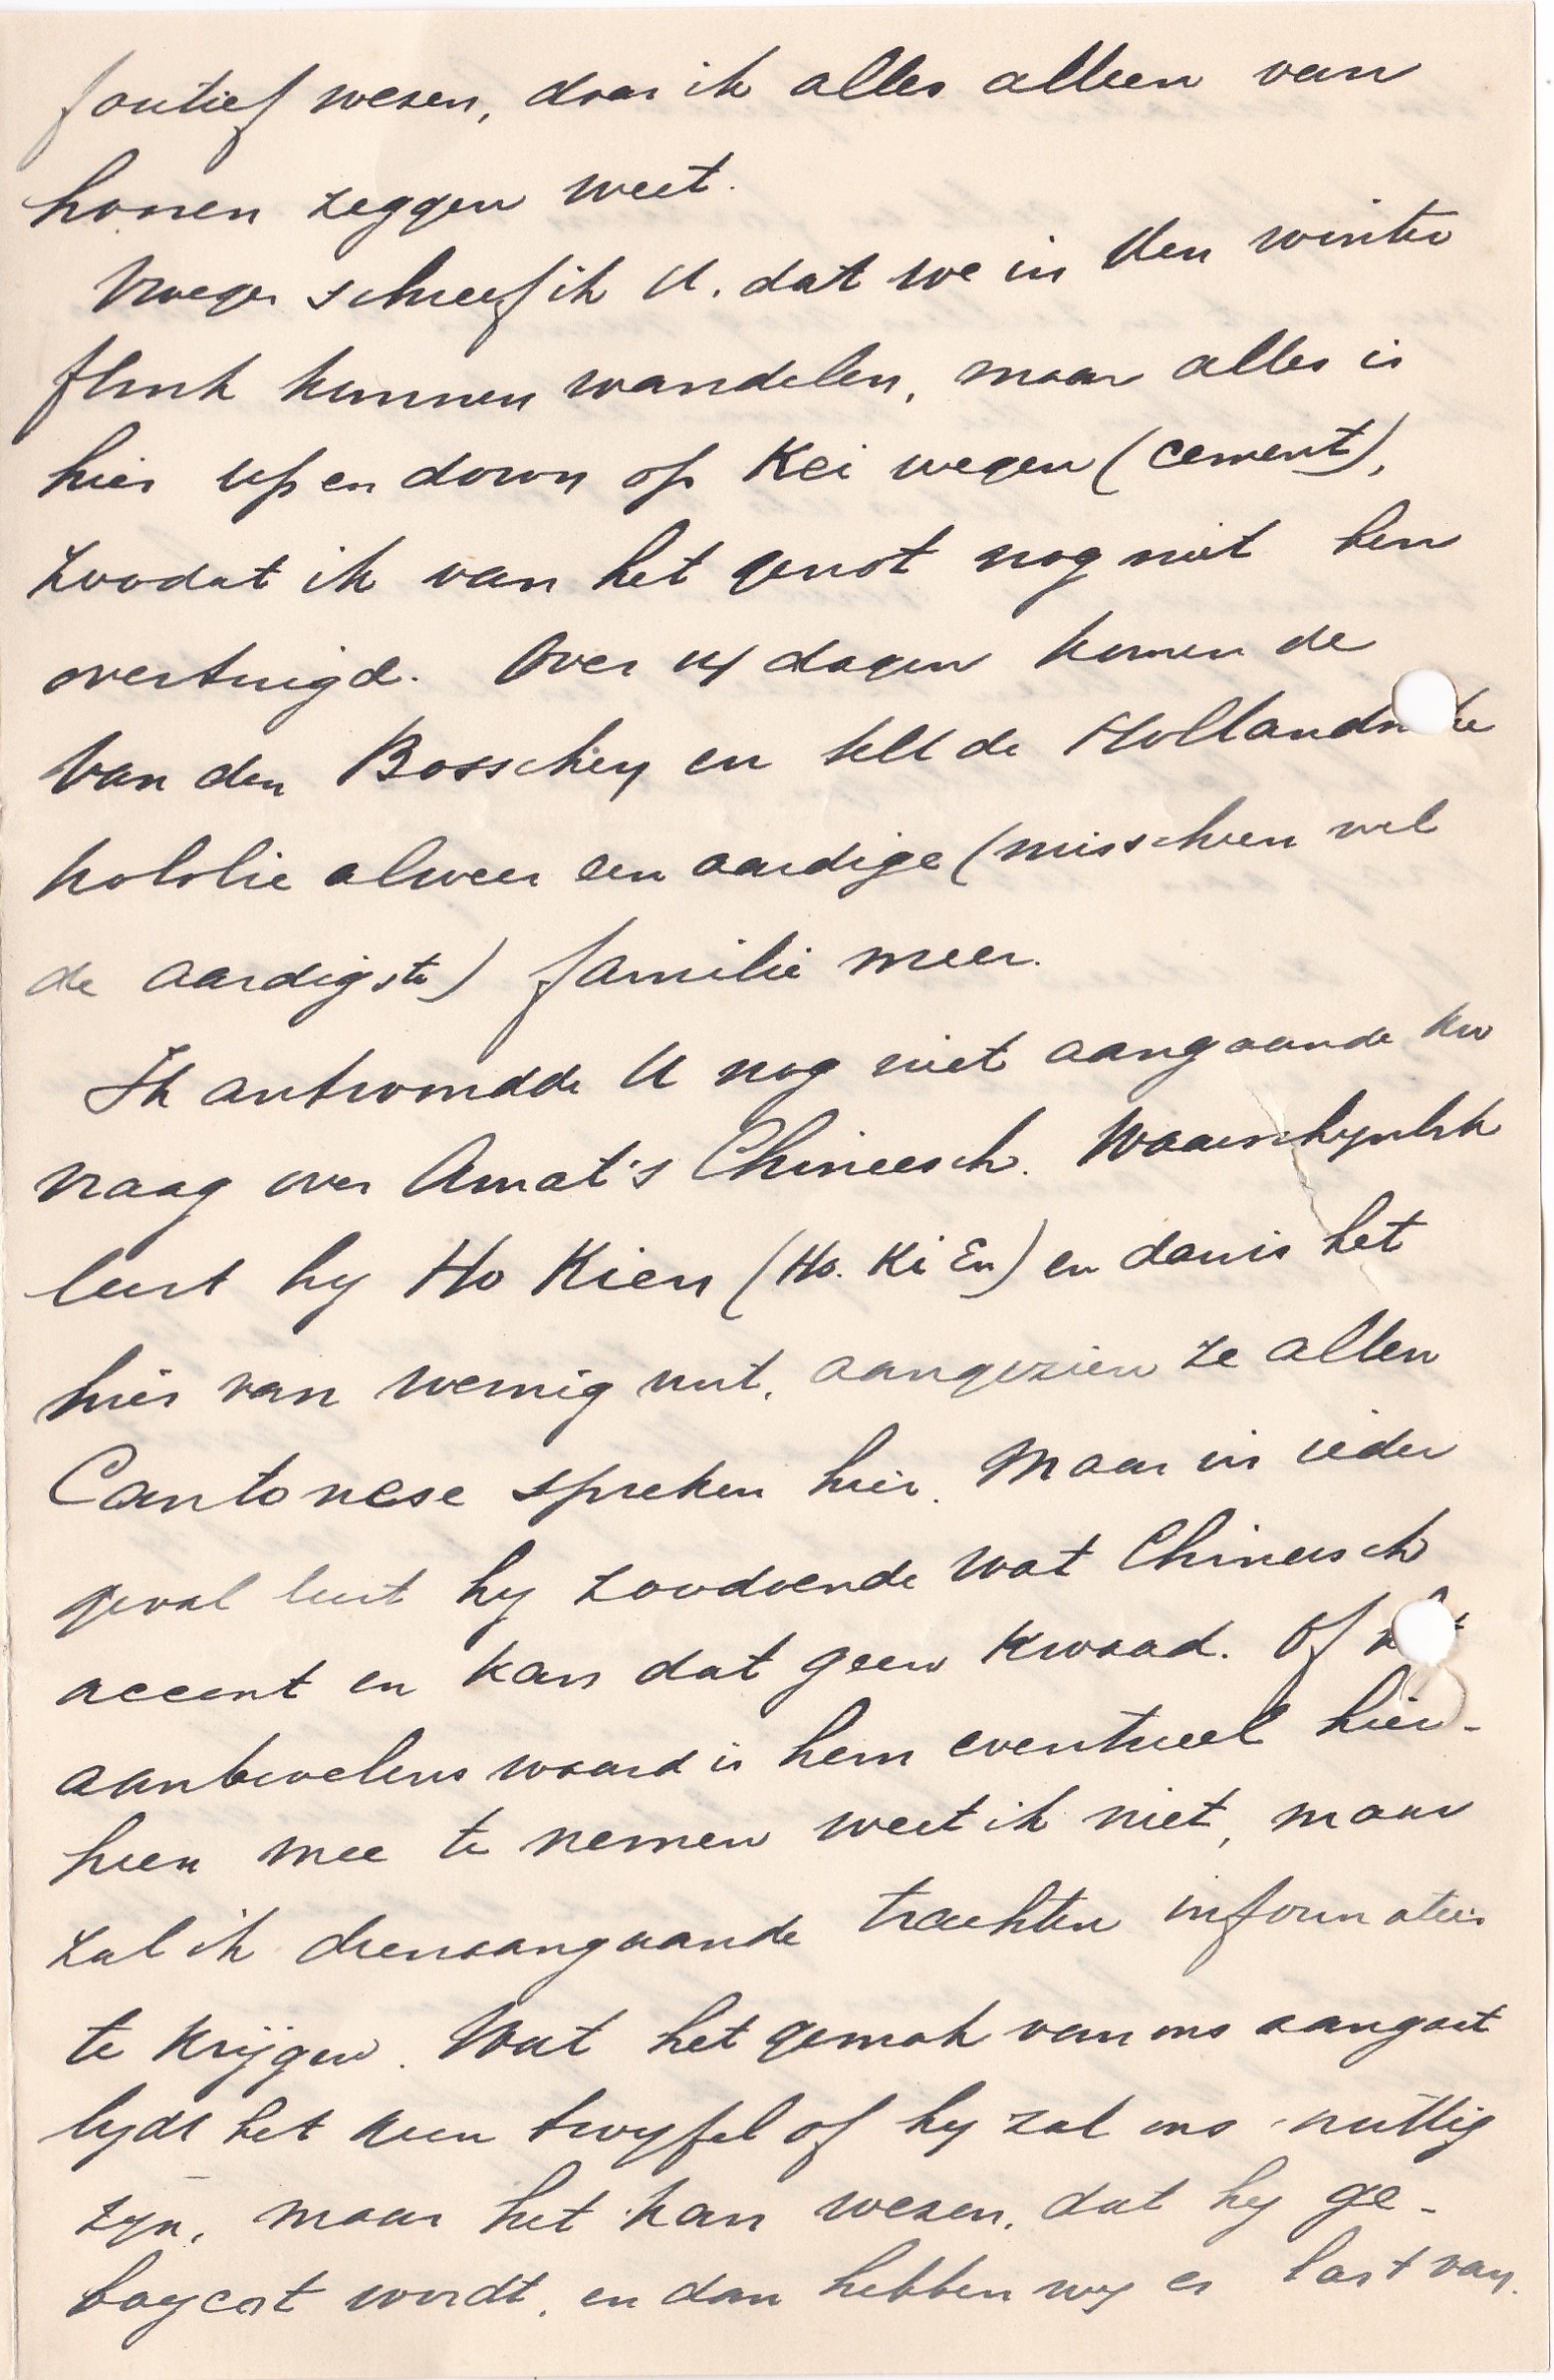 foutief wezen, daar ik alles alleen van
hooren zeggen weet.
Vroeger schreef ik U. dat we in den winter
flink kunnen wandelen, maar alles is
hier up en down op Kei wegen (cement),
zoodat ik van het genot nog niet ben
overtuigd. Over 14 dagen komen de
Van den Bossche's en telt de Hollandsche
kolonie alweer een aardige (misschien wel
de aardigste) familie meer.
Ik antwoordde U nog niet aangaande uw
vraag over Amat's Chineesch. Waarschynlyk
leert hy Ho Kien (Ho. Ki En) en dan is het
hier van weinig nut, aangezien ze allen
Cantonese spreken hier. Maar in ieder
geval leert hy zoodoende wat Chineesch
accent en kan dat geen kwaad. Of het
aanbevelenswaard is hem eventueel hier-
heen mee te nemen weet ik niet, maar
zal ik dienaangaande trachten informaties
te krijgen. Wat het gemak van ons aangaat
lydt het geen twyfel of hy zal ons nuttig
zyn, maar het kan wezen, dat hy ge-
boycot wordt, en dan hebben wy er last van.